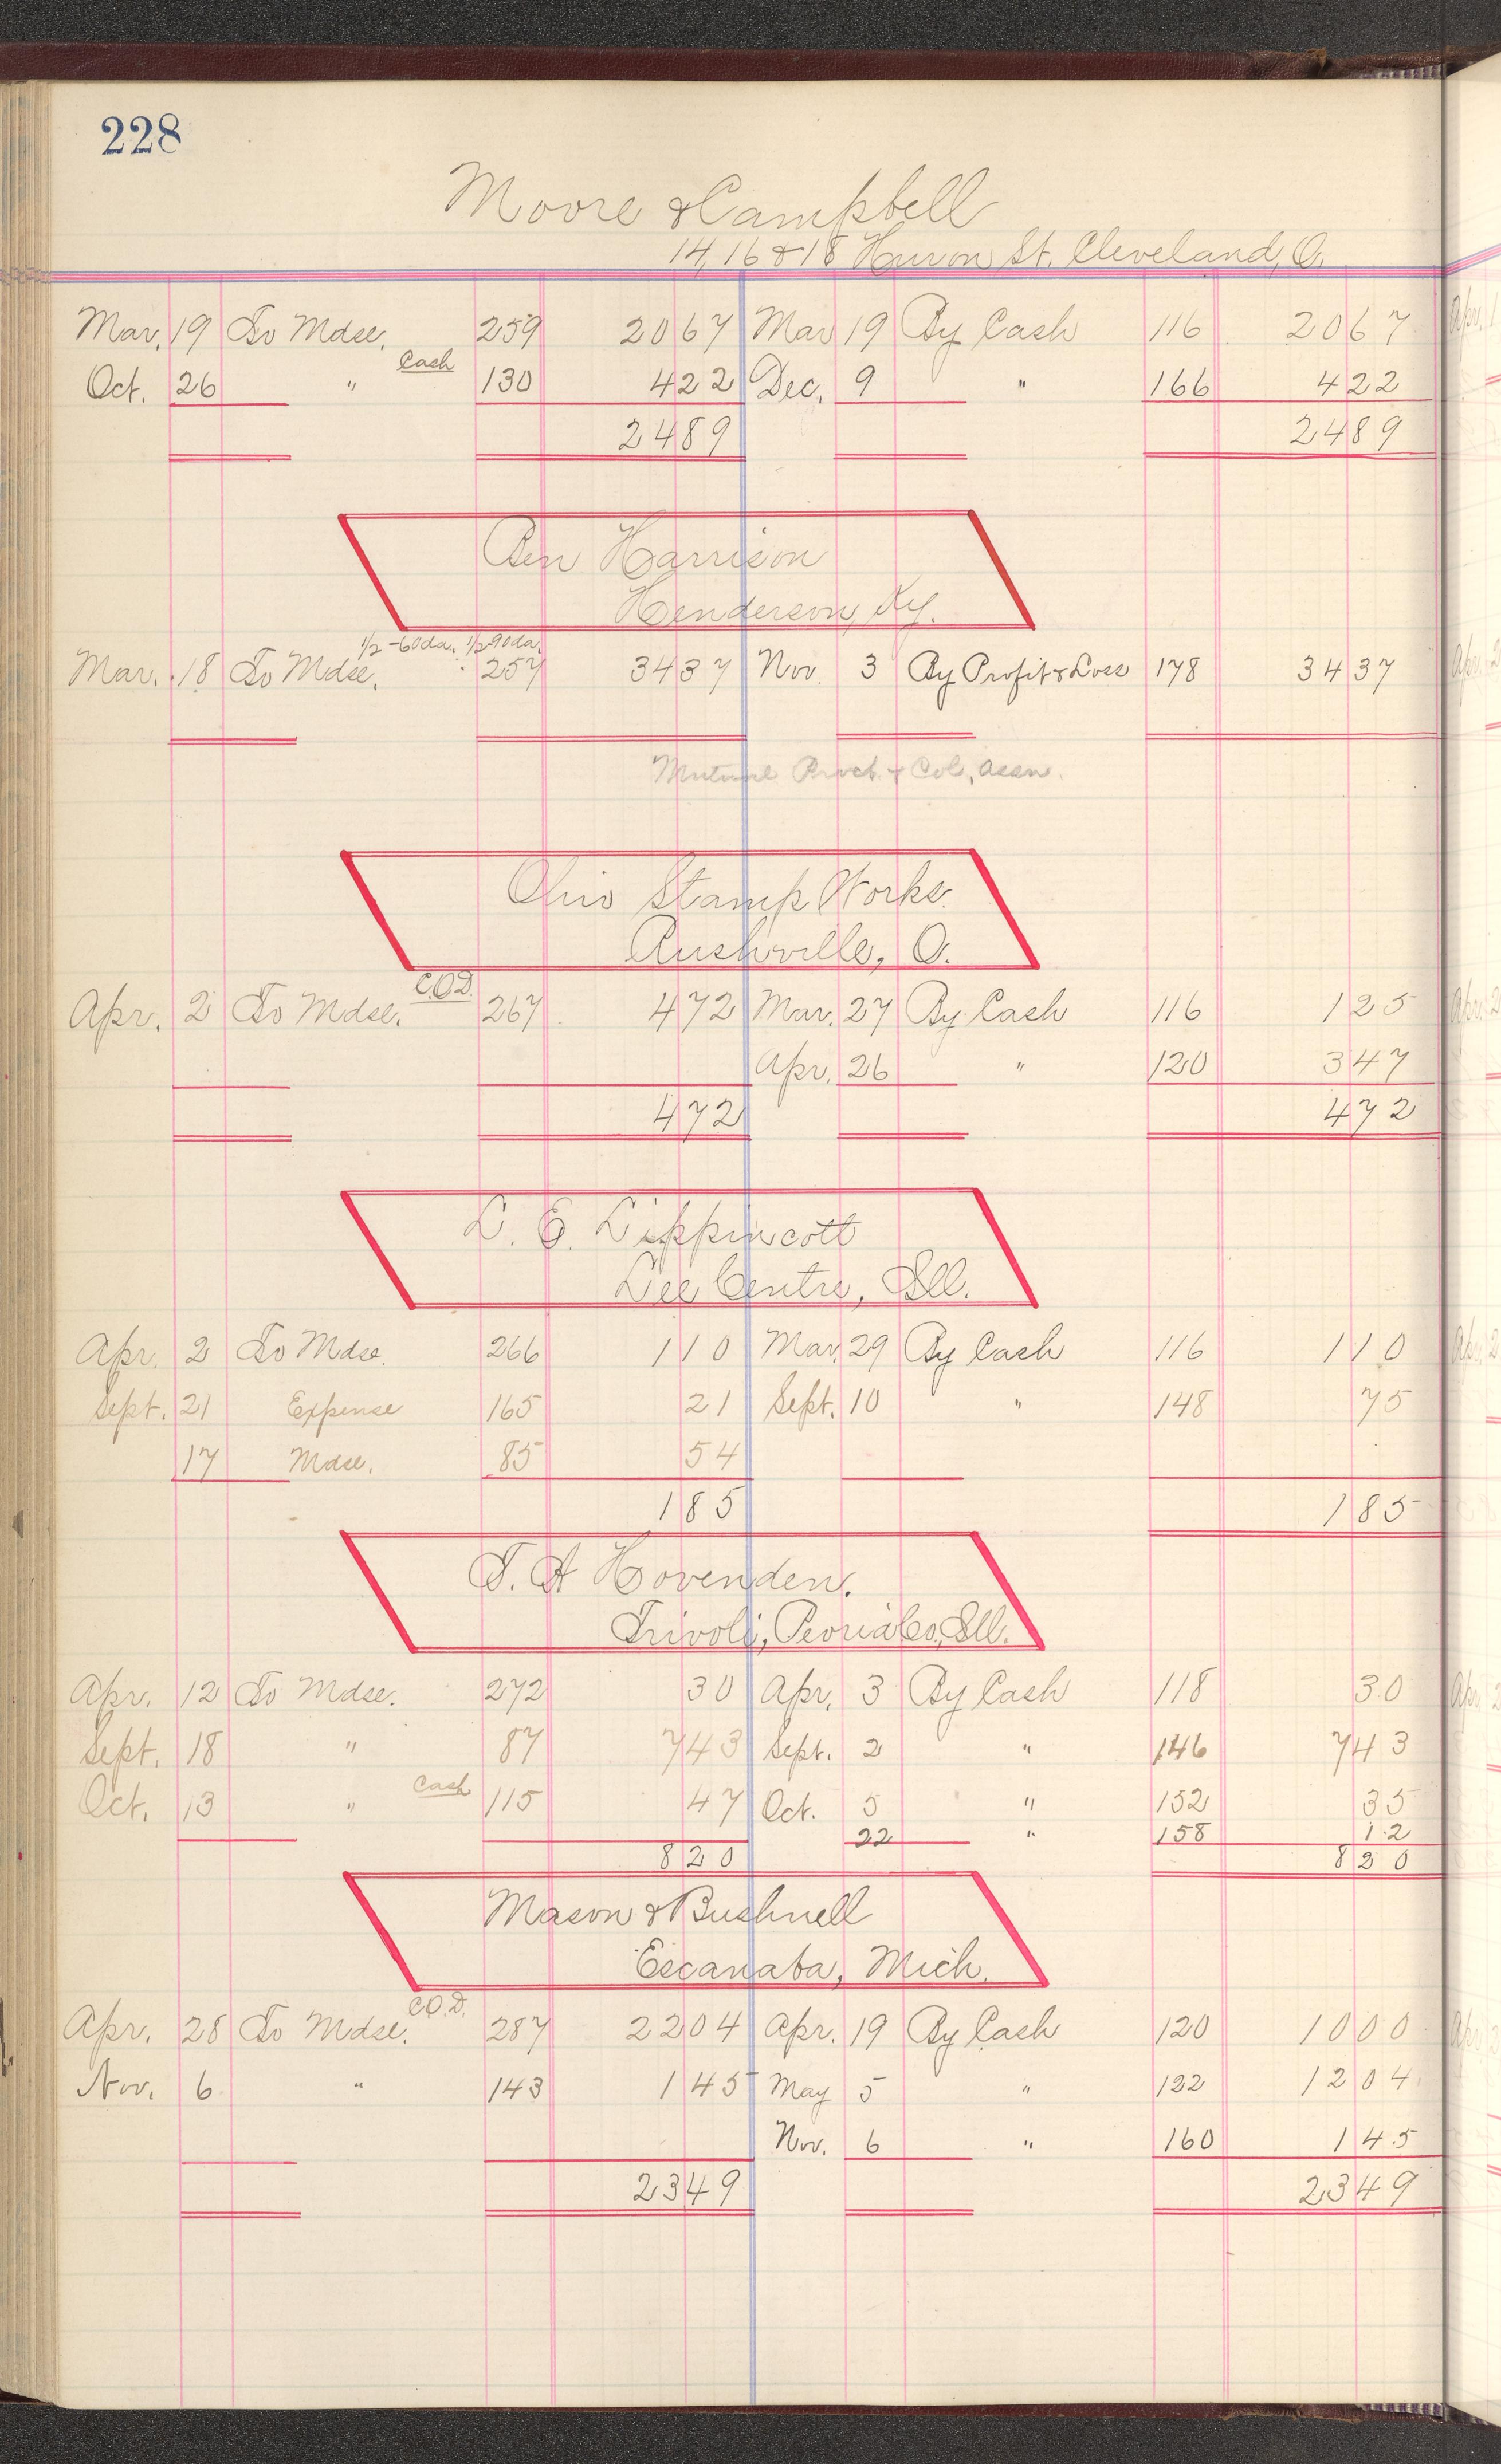 228
Moore & Campbell
14, 16 & 18 Huron St. Cleveland, O.
Mar. 19 To Mdse. 259 20 67 Mar 19 By Cash 116 20 67
Cash
Oct. 26 " 130 4 22 Dec. 9 " 166 4 22
24 89 24 89
Ben Harrison
Henderson, Ky.
1/2 - 60 da. 1/2 - 90 da.
Mar. 18 To Mdse. 257 34 37 Nov. 3 By Profit & Loss 178 34 37
Mutual Proct. & Col. Assn.
Ohio Stamp Works.
Rushville, O.
C.O.D.
Apr. 2 To Mdse. 267 4 72 Mar. 27 By Cash 116 1 25
Apr. 26 " 120 3 47
4 72 4 72
L. E. Lippincott
Lee Centre, Ill.
Apr. 2 To Mdse. 266 1 10 Mar. 29 By Cash 116 1 10
Sept. 21 Expense 165 21 Sept. 10 " 148 75
17 Mdse. 85 54
1 85 1 85
T. A Hovenden.
Trivoli, Peoria Co., Ill.
Apr. 12 To Mdse. 272 30 Apr. 3 By Cash 118 30
Sept. 18 " 87 7 43 Sept. 2 " 146 7 43
Cash
Oct. 13 " 115 47 Oct. 5 " 152 35
22 " 158 12
8 20 8 20
Mason & Bushnell
Escanaba, Mich.
C.O.D.
Apr. 28 To Mdse. 287 22 04 Apr. 19 By Cash 120 10 00
Nov. 6 " 143 1 45 May 5 " 122 12 04
Nov. 6 " 160 1 45
23 49 23 49